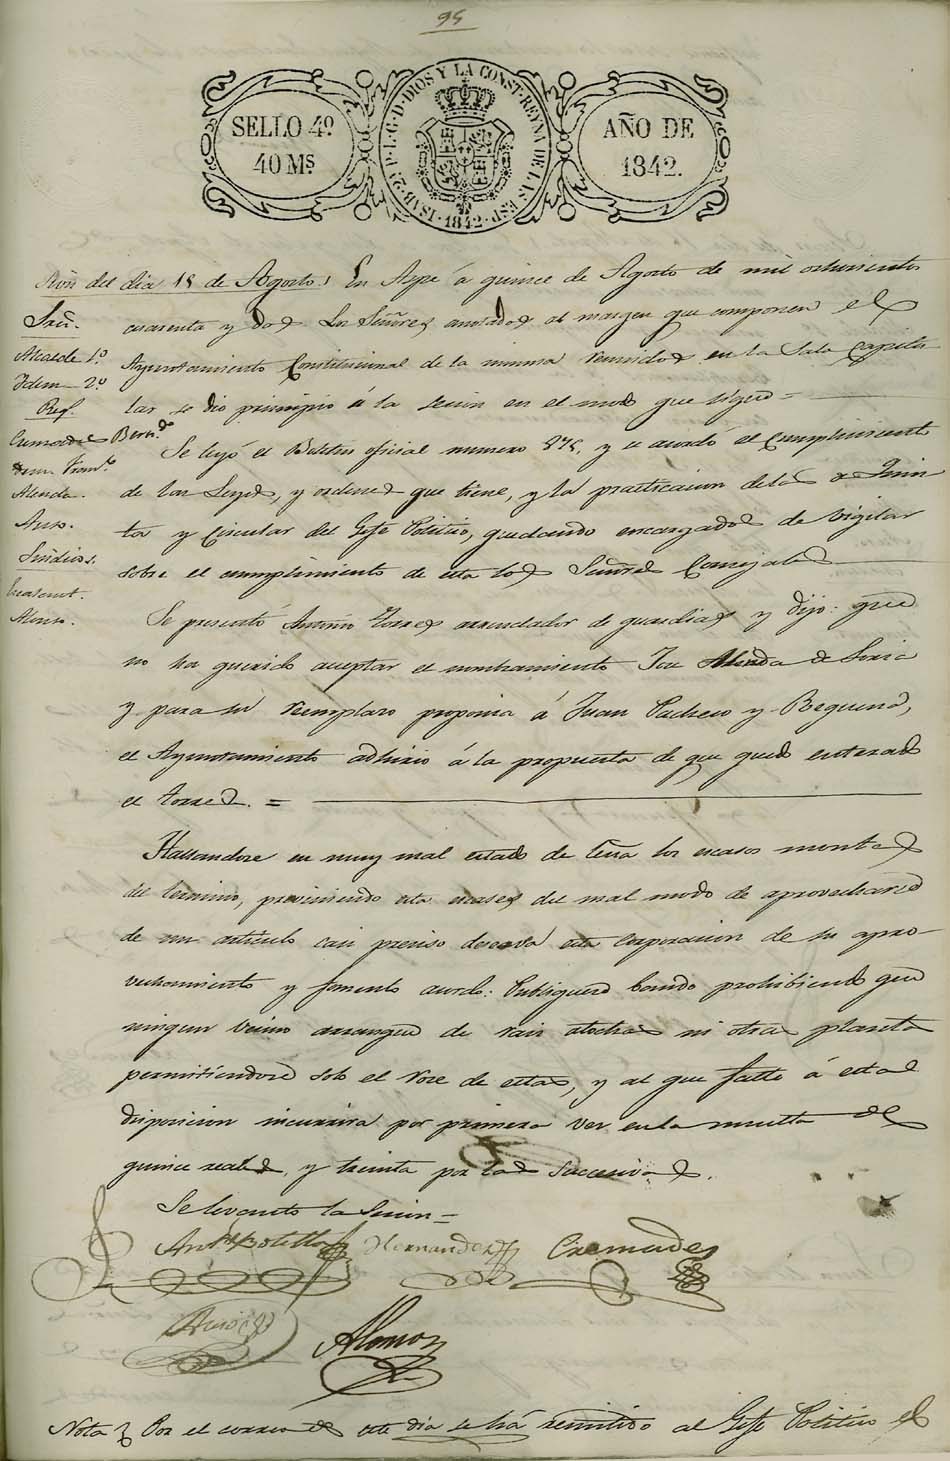 95
SELLO 4º
40 Ms.
ISAB. 2ª P. L. G. D. DIOS Y LA CONST. REYNA DE LAS ESP.
1842
AÑO DE
1842.
Sion del dia 15 de Agosto. En Aspe á quince de Agosto de mil ochocientos
cuarenta y dos Los Señores anotados al margen que componen el
Ayuntamiento Constitucional de la misma reunidos en la Sala Capitu
lar se dio principio á la sesion en el modo que sigue =
Sres.
Alcalde 1º
Idem 2º
Reg.
Cremades Bern.do
Idem Fran.co
Alenda.
Auso.
Sindicos.
Alonso.
Se leyó el Boletin oficial numero 875, y se acordó el cumplimiento
de las Leyes, y ordenes que tiene, y la practicacion de la de Quin
ta y Circular del Gefe Politico, quedando encargados de vigilar
sobre el cumplimiento de esta los Señores Concejales
Se presentó Antonio Torres arrendador de guardias y dijo: que
no ha querido aceptar el nombramiento Jose Alenda de Soria
y para su reemplazo proponia á Juan Pacheco y Requena,
el Ayuntamiento adhirio á la propuesta de que quedo enterado
el Torres. =
Hallandose en muy mal estado de leña los escasos montes
del termino, proviniendo esta escasez del mal modo de aprovecharse
de un articulo tan preciso deseosa esta Corporacion de su apro-
vechamiento y fomento acordo: Publiquese bando prohibiendo que
ningun vecino arranque de raiz atochas ni otra planta
permitiendose solo el roce de estas, y al que falte á esta
disposicion incurrira por primera vez en la multa de
quince reales, y treinta por las sucesivas.
Se levanto la Sesion =
Ant.º Botella Hernandez Cremades
Auso
Alonso
Nota } Por el correo de este dia se há remitido al Gefe Politico el